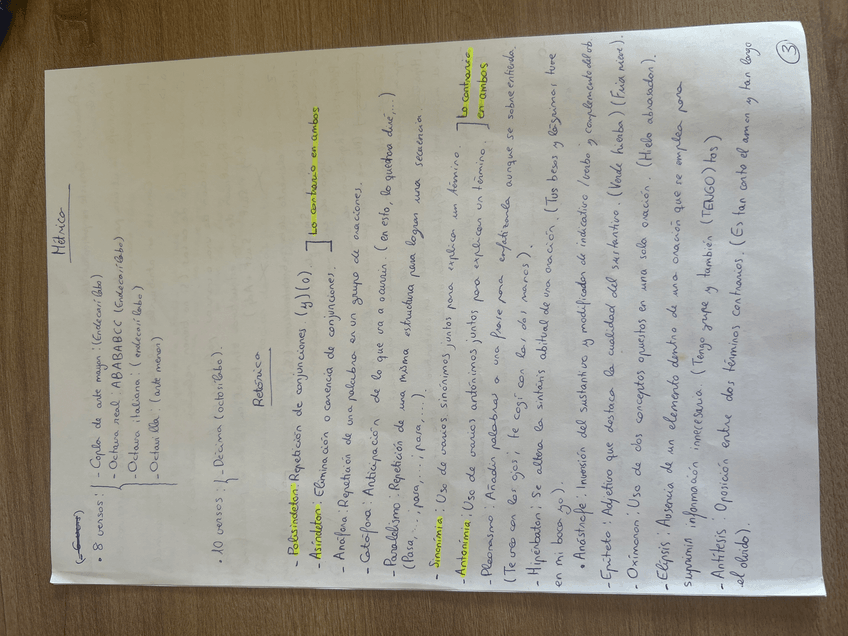 Métrica
• 8 versos: { - Copla de arte mayor: (Endecasílabo)
- Octava real: ABABABCC (Endecasílabo)
- Octava italiana: (endecasílabo)
- Octavilla: (arte menor)
• 10 versos: { - Décima (octosílabo).
Retórica
- Polisíndeton: Repetición de conjunciones (y) (o).
- Asíndeton: Eliminación o carencia de conjunciones.
] Lo contrario en ambos
- Anáfora: Repetición de una palabra en un grupo de oraciones.
- Catáfora: Anticipación de lo que va a ocurrir. (en esto, lo que diré,...)
- Paralelismo: Repetición de una misma estructura para lograr una secuencia.
(Pasa, ..., para, ..., para, ...).
- Sinonímia: Uso de varios sinónimos juntos para explicar un término.
- Antonímia: Uso de varios antónimos juntos para explicar un término.
] Lo contrario
en ambos
- Pleonasmo: Añadir palabras a una frase para enfatizarla aunque se sobreentienda.
(Te veo con los ojos, te cogí con las dos manos).
- Hipérbaton: Se altera la sintaxis abitual de una oración. (Tus besos y lágrimas, tuve
en mi boca yo).
• Anástrofe: Inversión del sustantivo y modificador de indicativo / verbo y complemento del ob.
- Epíteto: Adjetivo que destaca la cualidad del sustantivo. (Verde hierba) (Fría nieve).
- Oxímoron: Uso de dos conceptos opuestos en una sola oración. (Hielo abrasador).
- Elipsis: Ausencia de un elemento dentro de una oración que se emplea para
suprimir información innecesaria. (Tengo gripe y también (TENGO) tos)
- Antítesis: Oposición entre dos términos contrarios. (Es tan corto el amor y tan largo
el olvido).
3